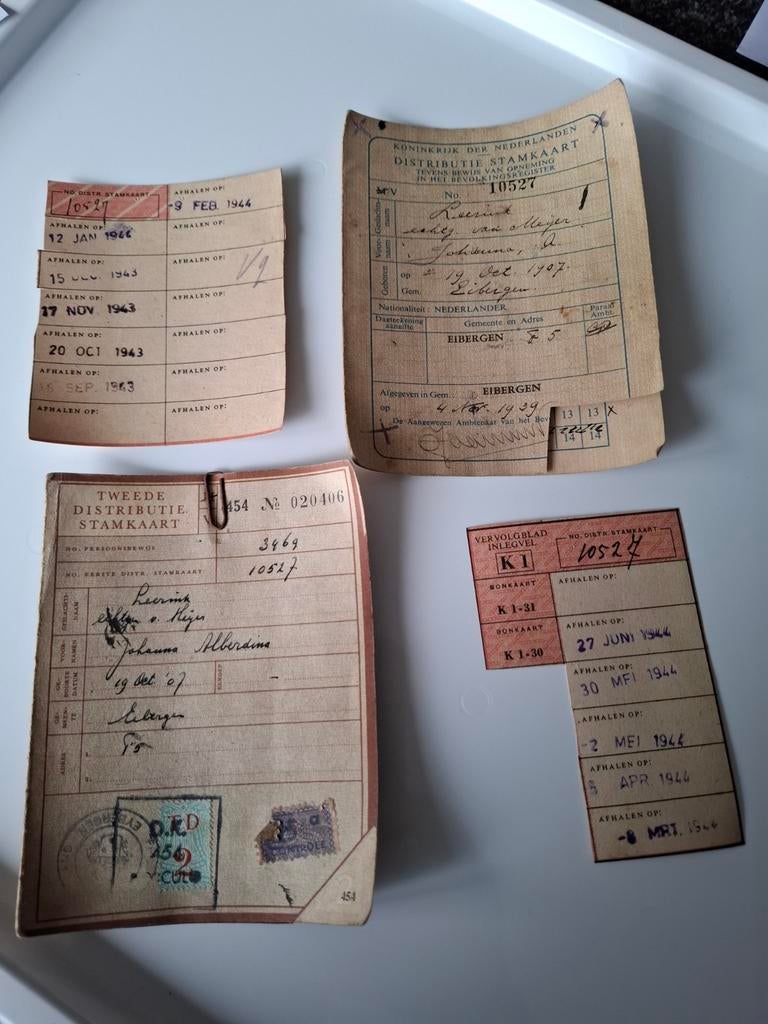 NO. DISTR. STAMKAART
10527
AFHALEN OP:
-9 FEB. 1944
AFHALEN OP:
12 JAN 1944
AFHALEN OP:
AFHALEN OP:
15 DEC. 1943
AFHALEN OP:
V2
AFHALEN OP:
17 NOV. 1943
AFHALEN OP:
AFHALEN OP:
20 OCT 1943
AFHALEN OP:
AFHALEN OP:
SEP. 1943
AFHALEN OP:
AFHALEN OP:
AFHALEN OP:
KONINKRIJK DER NEDERLANDEN
DISTRIBUTIE STAMKAART
TEVENS BEWIJS VAN OPNEMING
IN HET BEVOLKINGSREGISTER
V No. 10527
1
Leerink
echtg. van Meijer
Johanna, A.
Geboren op 19 Oct. 1907.
Gem. Eibergen.
Nationaliteit: NEDERLANDER
Dagteekening aangifte
Gemeente en Adres
Paraaf Ambt.
EIBERGEN F 5
Afgegeven in Gem.: EIBERGEN
op 4 Nov. 1939
De Aangewezen Ambtenaar van het Bev
13 13
14 14
TWEEDE
DISTRIBUTIE
STAMKAART
454 № 020406
NO. PERSOONSBEWIJS
3469
NO. EERSTE DISTR. STAMKAART
10527
GESLACHTSNAAM
Leerink
echtg. v. Meijer
VOORNAMEN
Johanna Alberdina
GEBOORTEDATUM
19 Oct '07
BEROEP
-
GEMEENTE
Eibergen
ADRES
1.
F5
2.
D.K.
454
TD
2
CONTROLE
454
VERVOLGBLAD
INLEGVEL
K 1
NO. DISTR. STAMKAART
10527
BONKAART
K 1-31
AFHALEN OP:
BONKAART
K 1-30
AFHALEN OP:
27 JUNI 1944
AFHALEN OP:
30 MEI 1944
AFHALEN OP:
-2 MEI 1944
AFHALEN OP:
5 APR. 1944
AFHALEN OP:
-8 MRT. 1944